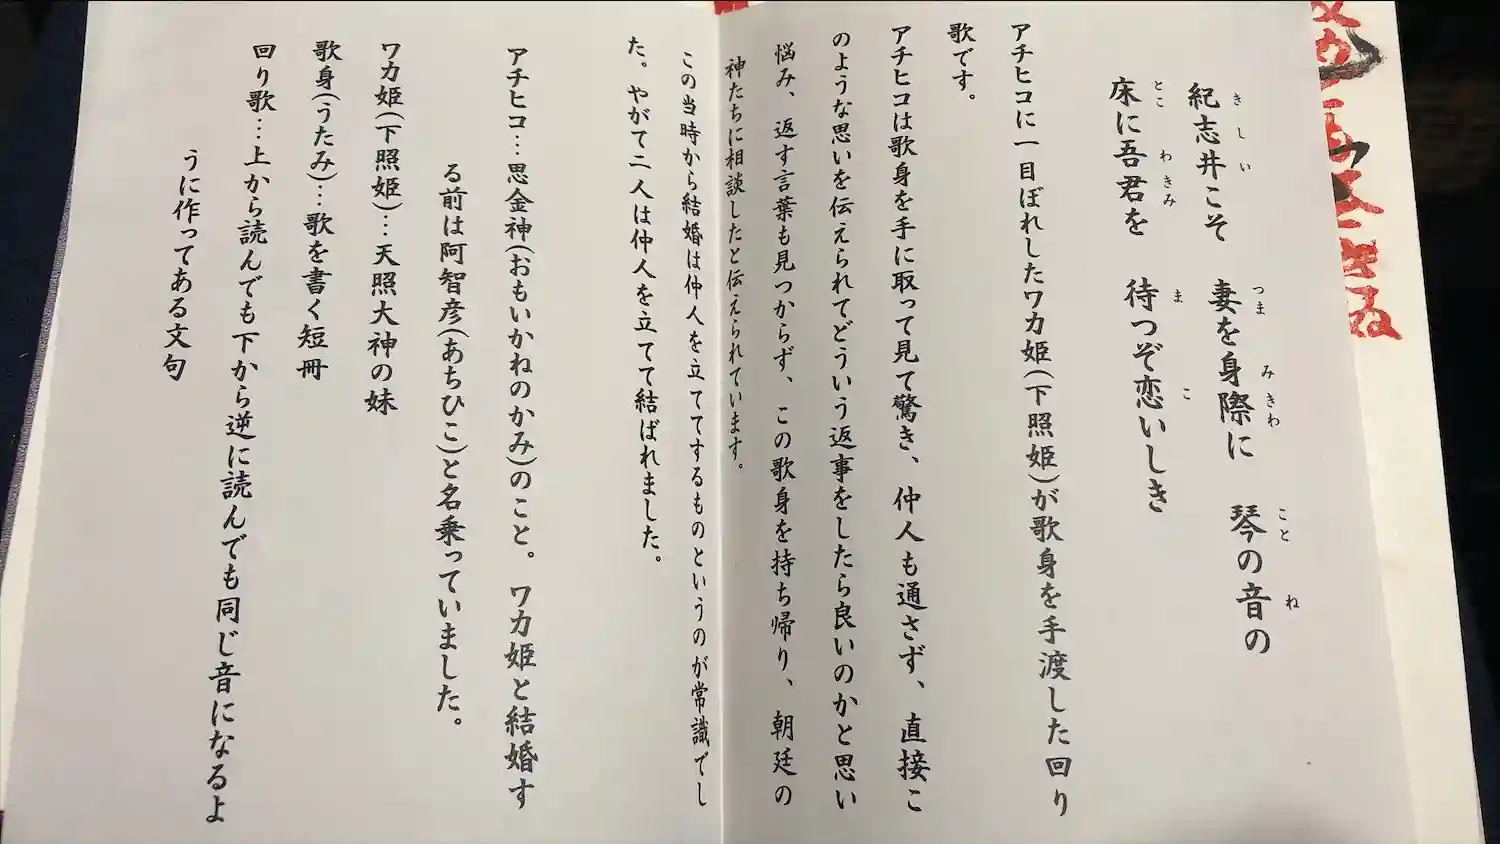 紀志井こそ　妻を身際に　琴の音の
床に吾君を　待つぞ恋いしき
アチヒコに一目ぼれしたワカ姫(下照姫)が歌身を手渡した回り
歌です。
アチヒコは歌身を手に取って見て驚き、仲人も通さず、直接こ
のような思いを伝えられてどういう返事をしたら良いのかと思い
悩み、返す言葉も見つからず、この歌身を持ち帰り、朝廷の
神たちに相談したと伝えられています。
この当時から結婚は仲人を立ててするものというのが常識でし
た。やがて二人は仲人を立てて結ばれました。
アチヒコ…思金神(おもいかねのかみ)のこと。ワカ姫と結婚す
る前は阿智彦(あちひこ)と名乗っていました。
ワカ姫(下照姫)…天照大神の妹
歌身(うたみ)…歌を書く短冊
回り歌…上から読んでも下から逆に読んでも同じ音になるよ
うに作ってある文句